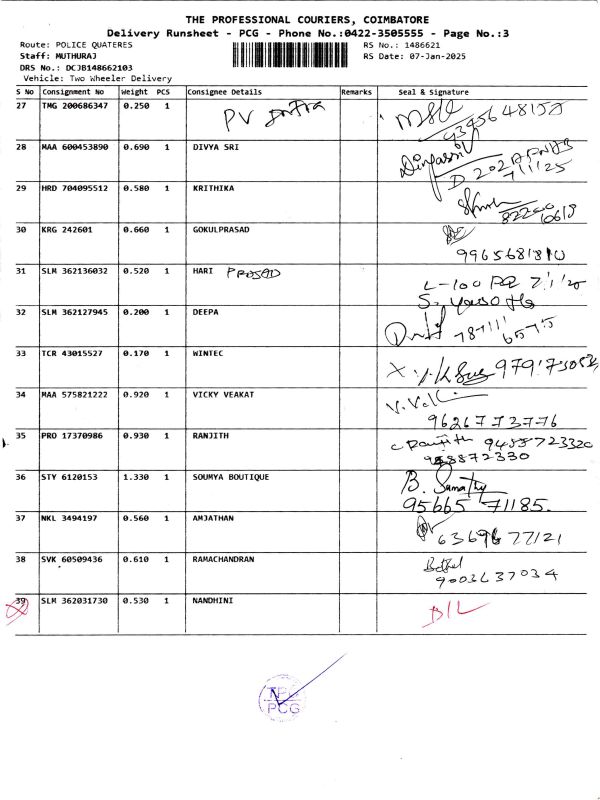 THE PROFESSIONAL COURIERS, COIMBATORE
Delivery Runsheet - PCG - Phone No.:0422-3505555 - Page No.:3
Route: POLICE QUATERES RS No.: 1486621
Staff: MUTHURAJ RS Date: 07-Jan-2025
DRS No.: DCJB148662103
Vehicle: Two Wheeler Delivery
S No Consignment No Weight PCS Consignee Details Remarks Seal & Signature
27 TMG 200686347 0.250 1 PV
28 MAA 600453890 0.690 1 DIVYA SRI
D 202
7/1/25
29 HRD 704095512 0.580 1 KRITHIKA
30 KRG 242601 0.660 1 GOKULPRASAD
9965681810
31 SLM 362136032 0.520 1 HARI PRASAD
L-100
32 SLM 362127945 0.200 1 DEEPA
33 TCR 43015527 0.170 1 WINTEC
34 MAA 575821222 0.920 1 VICKY VEAKAT
9626773776
35 PRO 17370986 0.930 1 RANJITH C Ranjith
36 STY 6120153 1.330 1 SOUMYA BOUTIQUE B. Sumathy
95665 71185.
37 NKL 3494197 0.560 1 AMJATHAN
38 SVK 60509436 0.610 1 RAMACHANDRAN
9003637034
39 SLM 362031730 0.530 1 NANDHINI D/L
TPC
PCG